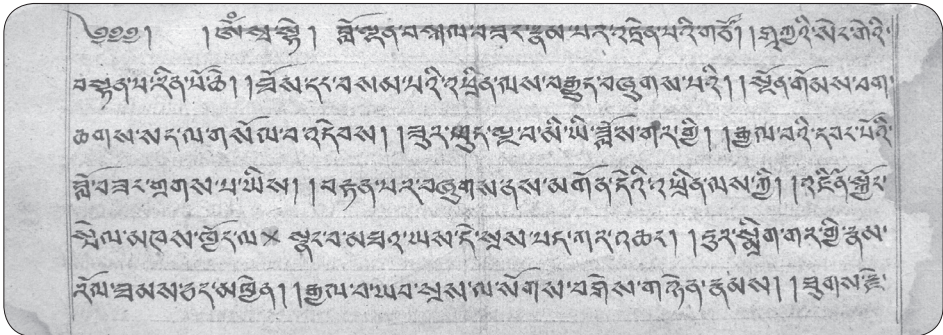 ༄༅༅། །ཨོཾ་སྭ་སྟི། བློ་ལྡན་བསྐལ་བཟང་རྣམ་པར་འདྲེན་པའི་གཙོ། །ཤཱཀྱའི་སེང་གེའི་
བསྟན་པ་རིན་པོ་ཆེ། །ཐོས་དང་བསམ་པའི་འཕྲིན་ལས་བརྒྱུད་བཞུགས་པའི། །སྔོན་གོམས་བག་
ཆགས་སད་ལ་གསོལ་བ་འདེབས། །ཟུར་ཕུད་ལྔ་བ་མི་ཡི་ཟློས་གར་གྱི། །རྒྱལ་བའི་དབང་པོའི་
བློ་བཟང་གྲགས་པ་ཡིས། །བརྟན་པར་བཞུགས་ནས་མགོན་དེའི་འཕྲིན་ལས་ཀྱི། །འཛིན་སྐྱོང་
སྤེལ་མཁས་ཁྱོད་ལ × སྣང་བ་མཐའ་ཡས་དེ་སྲས་པད་ཀར་འཆང་། །ངུར་སྨྲིག་གར་གྱི་རྣམ་
རོལ་ཐམས་ཅད་མཁྱེན། །རྒྱལ་བ་ཡབ་སྲས་ལ་སོགས་བགྲེས་གཉེན་རྣམས། །ཐུགས་རྗེ་